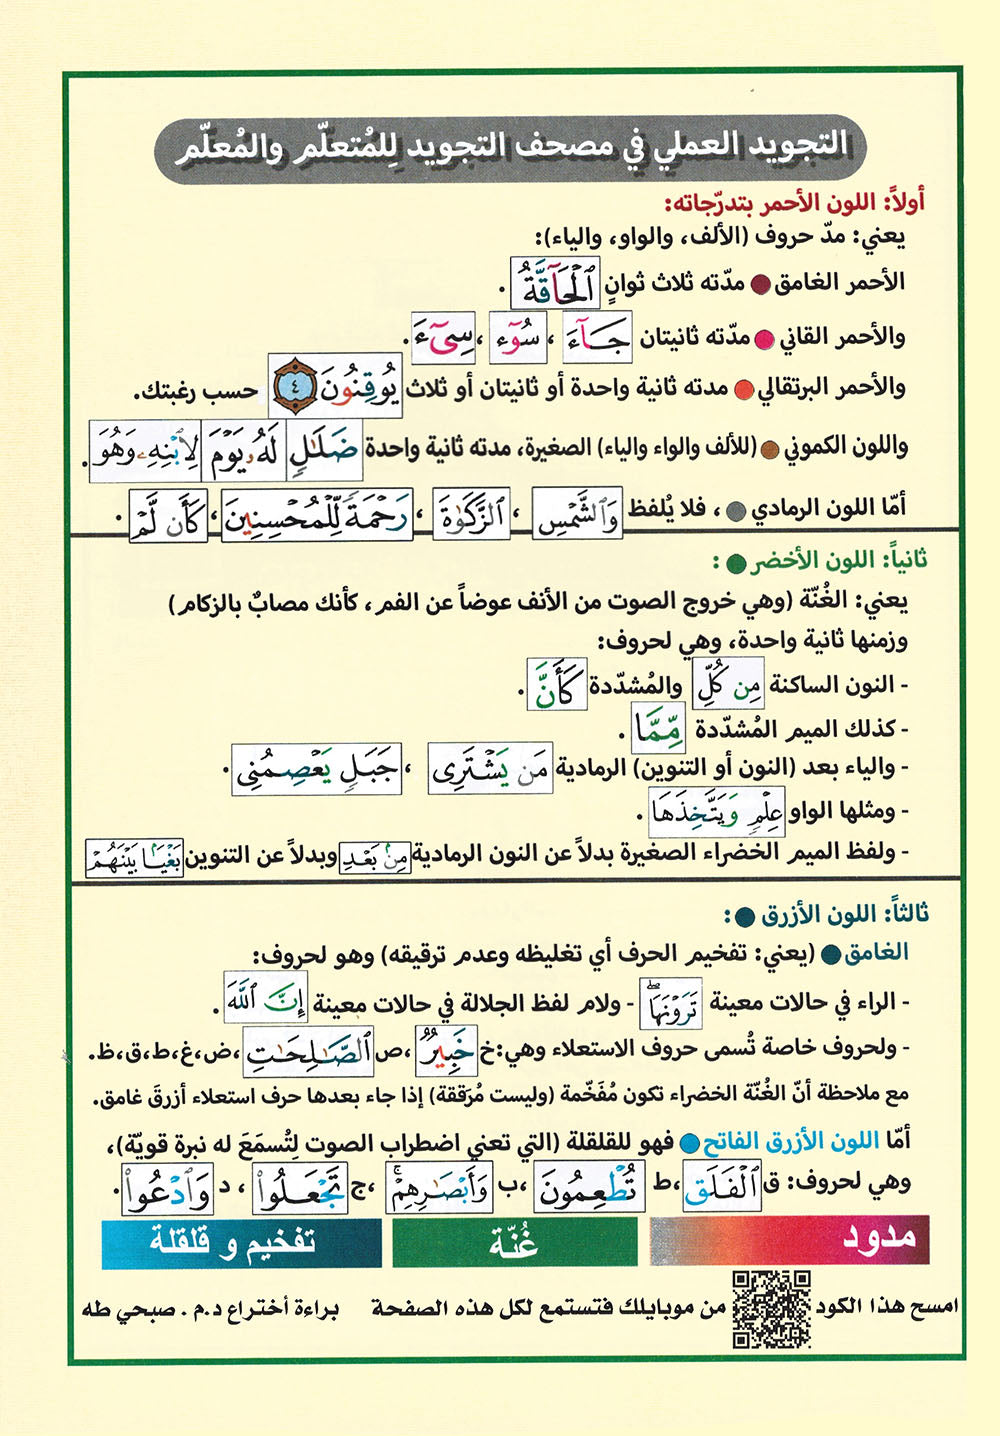 التجويد العملي في مصحف التجويد لِلمُتعلّم والمُعلّم
أولاً: اللون الأحمر بتدرّجاته:
يعني: مدّ حروف (الألف، والواو، والياء):
الأحمر الغامق مدّته ثلاث ثوانٍ ٱلۡحَآقَّةُ .
والأحمر القاني مدّته ثانيتان جَآءَ ، سُوٓءَ ، سِيٓءَ .
والأحمر البرتقالي مدته ثانية واحدة أو ثانيتان أو ثلاث يُوقِنُونَ ٤ حسب رغبتك.
واللون الكموني (للألف والواء والياء) الصغيرة، مدته ثانية واحدة ضَلَٰلٖ لَهُۥ يَوۡمَ لِٱبۡنِهِۦ وَهُوَ .
أمّا اللون الرمادي ، فلا يُلفظ وَٱلشَّمۡسِ ، ٱلزَّكَوٰةَ ، رَحۡمَةٗ لِّلۡمُحۡسِنِينَ ، كَأَن لَّمۡ .
ثانياً: اللون الأخضر :
يعني: الغُنّة (وهي خروج الصوت من الأنف عوضاً عن الفم، كأنك مصابٌ بالزكام)
وزمنها ثانية واحدة، وهي لحروف:
- النون الساكنة مِن كُلِّ والمُشدّدة كَأَنَّ .
- كذلك الميم المُشدّدة مِّمَّا .
- والياء بعد (النون أو التنوين) الرمادية مَن يَشۡتَرِي ، جَبَلٖ يَعۡصِمُنِي .
- ومثلها الواو عِلۡمٖ وَيَتَّخِذَهَا .
- ولفظ الميم الخضراء الصغيرة بدلاً عن النون الرمادية مِنۢ بَعۡدِ وبدلاً عن التنوين بَغۡيَۢا بَيۡنَهُمۡ
ثالثاً: اللون الأزرق :
الغامق (يعني: تفخيم الحرف أي تغليظه وعدم ترقيقه) وهو لحروف:
- الراء في حالات معينة تَرَوۡنَهَاۖ - ولام لفظ الجلالة في حالات معينة إِنَّ ٱللَّهَ .
- ولحروف خاصة تُسمى حروف الاستعلاء وهي: خ خَبِيرٞ ،ص ٱلصَّٰلِحَٰتِ ،ض،غ،ط،ق،ظ.
مع ملاحظة أنّ الغُنّة الخضراء تكون مُفَخّمة (وليست مُرَقّقة) إذا جاء بعدها حرف استعلاء أزرقَ غامق.
أمّا اللون الأزرق الفاتح فهو للقلقلة (التي تعني اضطراب الصوت لِتُسمَعَ له نبرة قويّة)،
وهي لحروف: ق ٱلۡفَلَقِ ،ط تُطۡعِمُونَ ،ب وَأَبۡصَٰرِهِمۡۚ ،ج تَجۡعَلُواْ ، د وَٱدۡعُواْ .
مدود غُنّة تفخيم و قلقلة
امسح هذا الكود من موبايلك فتستمع لكل هذه الصفحة براءة أختراع د.م . صبحي طه